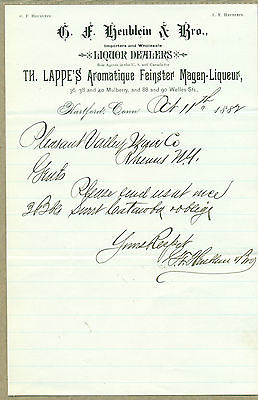 G. F. HEUBLEIN    A. F. HEUBLEIN
G. F. Heublein & Bro.,
Importers and Wholesale
LIQUOR DEALERS
Sole Agents in the U. S. and Canada for
TH. LAPPE'S Aromatique Feinster Magen-Liqueur,
36, 38 and 40 Mulberry, and 88 and 90 Welles Sts.,
Hartford, Conn Oct 11th 1882
Pleasant Valley Wine Co
Rheims N.Y.
Gents
Please send us at once
2 Bbls Sweet Catawba & oblige
Yours Respct
G. F. Heublein & Bro